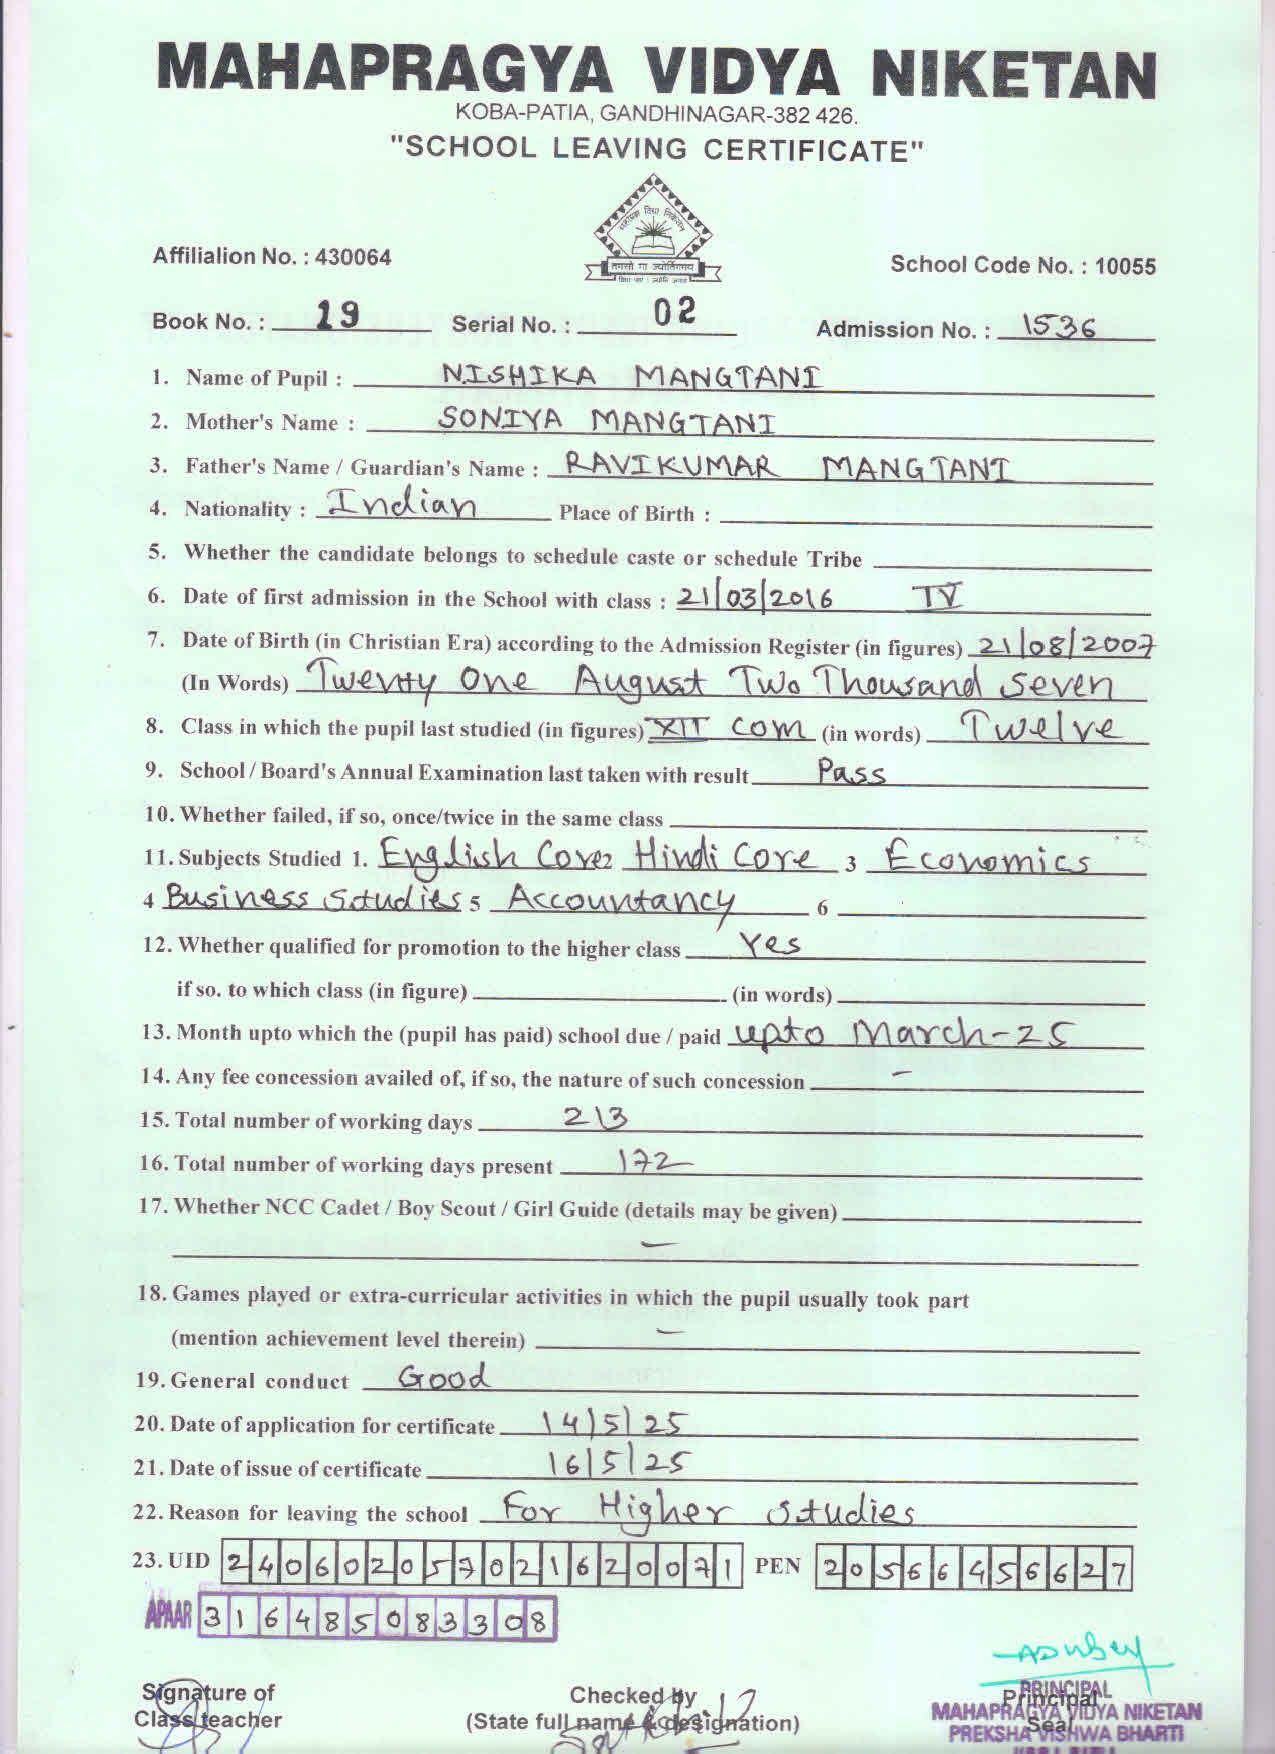 MAHAPRAGYA VIDYA NIKETAN
KOBA-PATIA, GANDHINAGAR-382 426.
"SCHOOL LEAVING CERTIFICATE"
महाप्रज्ञ विद्या निकेतन
तमसो मा ज्योतिर्गमय
Affilialion No. : 430064
School Code No. : 10055
Book No. : 19 Serial No. : 02 Admission No. : 1536
1. Name of Pupil : NISHIKA MANGTANI
2. Mother's Name : SONIYA MANGTANI
3. Father's Name / Guardian's Name : RAVIKUMAR MANGTANI
4. Nationality : Indian Place of Birth :
5. Whether the candidate belongs to schedule caste or schedule Tribe
6. Date of first admission in the School with class : 21/03/2016 IV
7. Date of Birth (in Christian Era) according to the Admission Register (in figures) 21/08/2007
(In Words) Twenty One August Two Thousand Seven
8. Class in which the pupil last studied (in figures) XII COM (in words) Twelve
9. School / Board's Annual Examination last taken with result Pass
10. Whether failed, if so, once/twice in the same class
11. Subjects Studied 1. English Core 2 Hindi Core 3 Economics
4 Business Studies 5 Accountancy 6
12. Whether qualified for promotion to the higher class Yes
if so. to which class (in figure) (in words)
13. Month upto which the (pupil has paid) school due / paid upto March-25
14. Any fee concession availed of, if so, the nature of such concession -
15. Total number of working days 213
16. Total number of working days present 172
17. Whether NCC Cadet / Boy Scout / Girl Guide (details may be given)
-
18. Games played or extra-curricular activities in which the pupil usually took part
(mention achievement level therein) -
19. General conduct Good
20. Date of application for certificate 14/5/25
21. Date of issue of certificate 16/5/25
22. Reason for leaving the school For Higher Studies
23. UID 240602057021620071 PEN 20566456627
APAAR 316485083308
Signature of
Class teacher
Checked by
(State full name & designation)
Principal
Seal
PRINCIPAL
MAHAPRAGYA VIDYA NIKETAN
PREKSHA VISHWA BHARTI